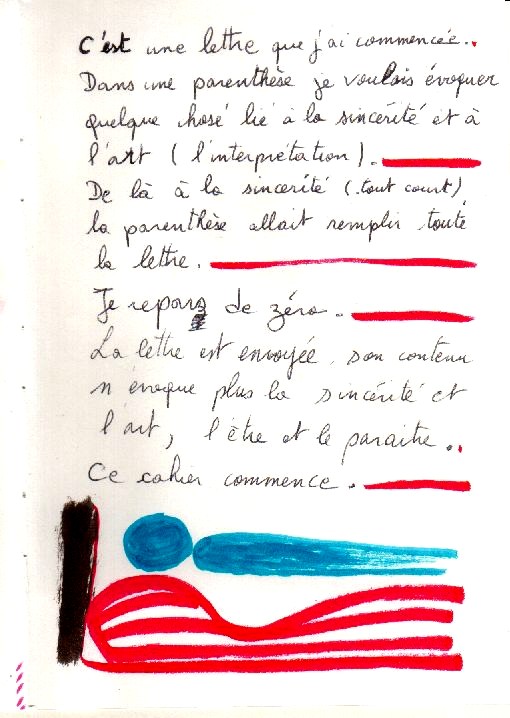 C'est une lettre que j'ai commencée..
Dans une parenthèse je voulais évoquer
quelque chose lié à la sincérité et à
l'art (l'interprétation).
De là à la sincérité (tout court)
la parenthèse allait remplir toute
la lettre.
Je repars de zéro.
La lettre est envoyée, son contenu
n'évoque plus la sincérité et
l'art, l'être et le paraitre..
Ce cahier commence.